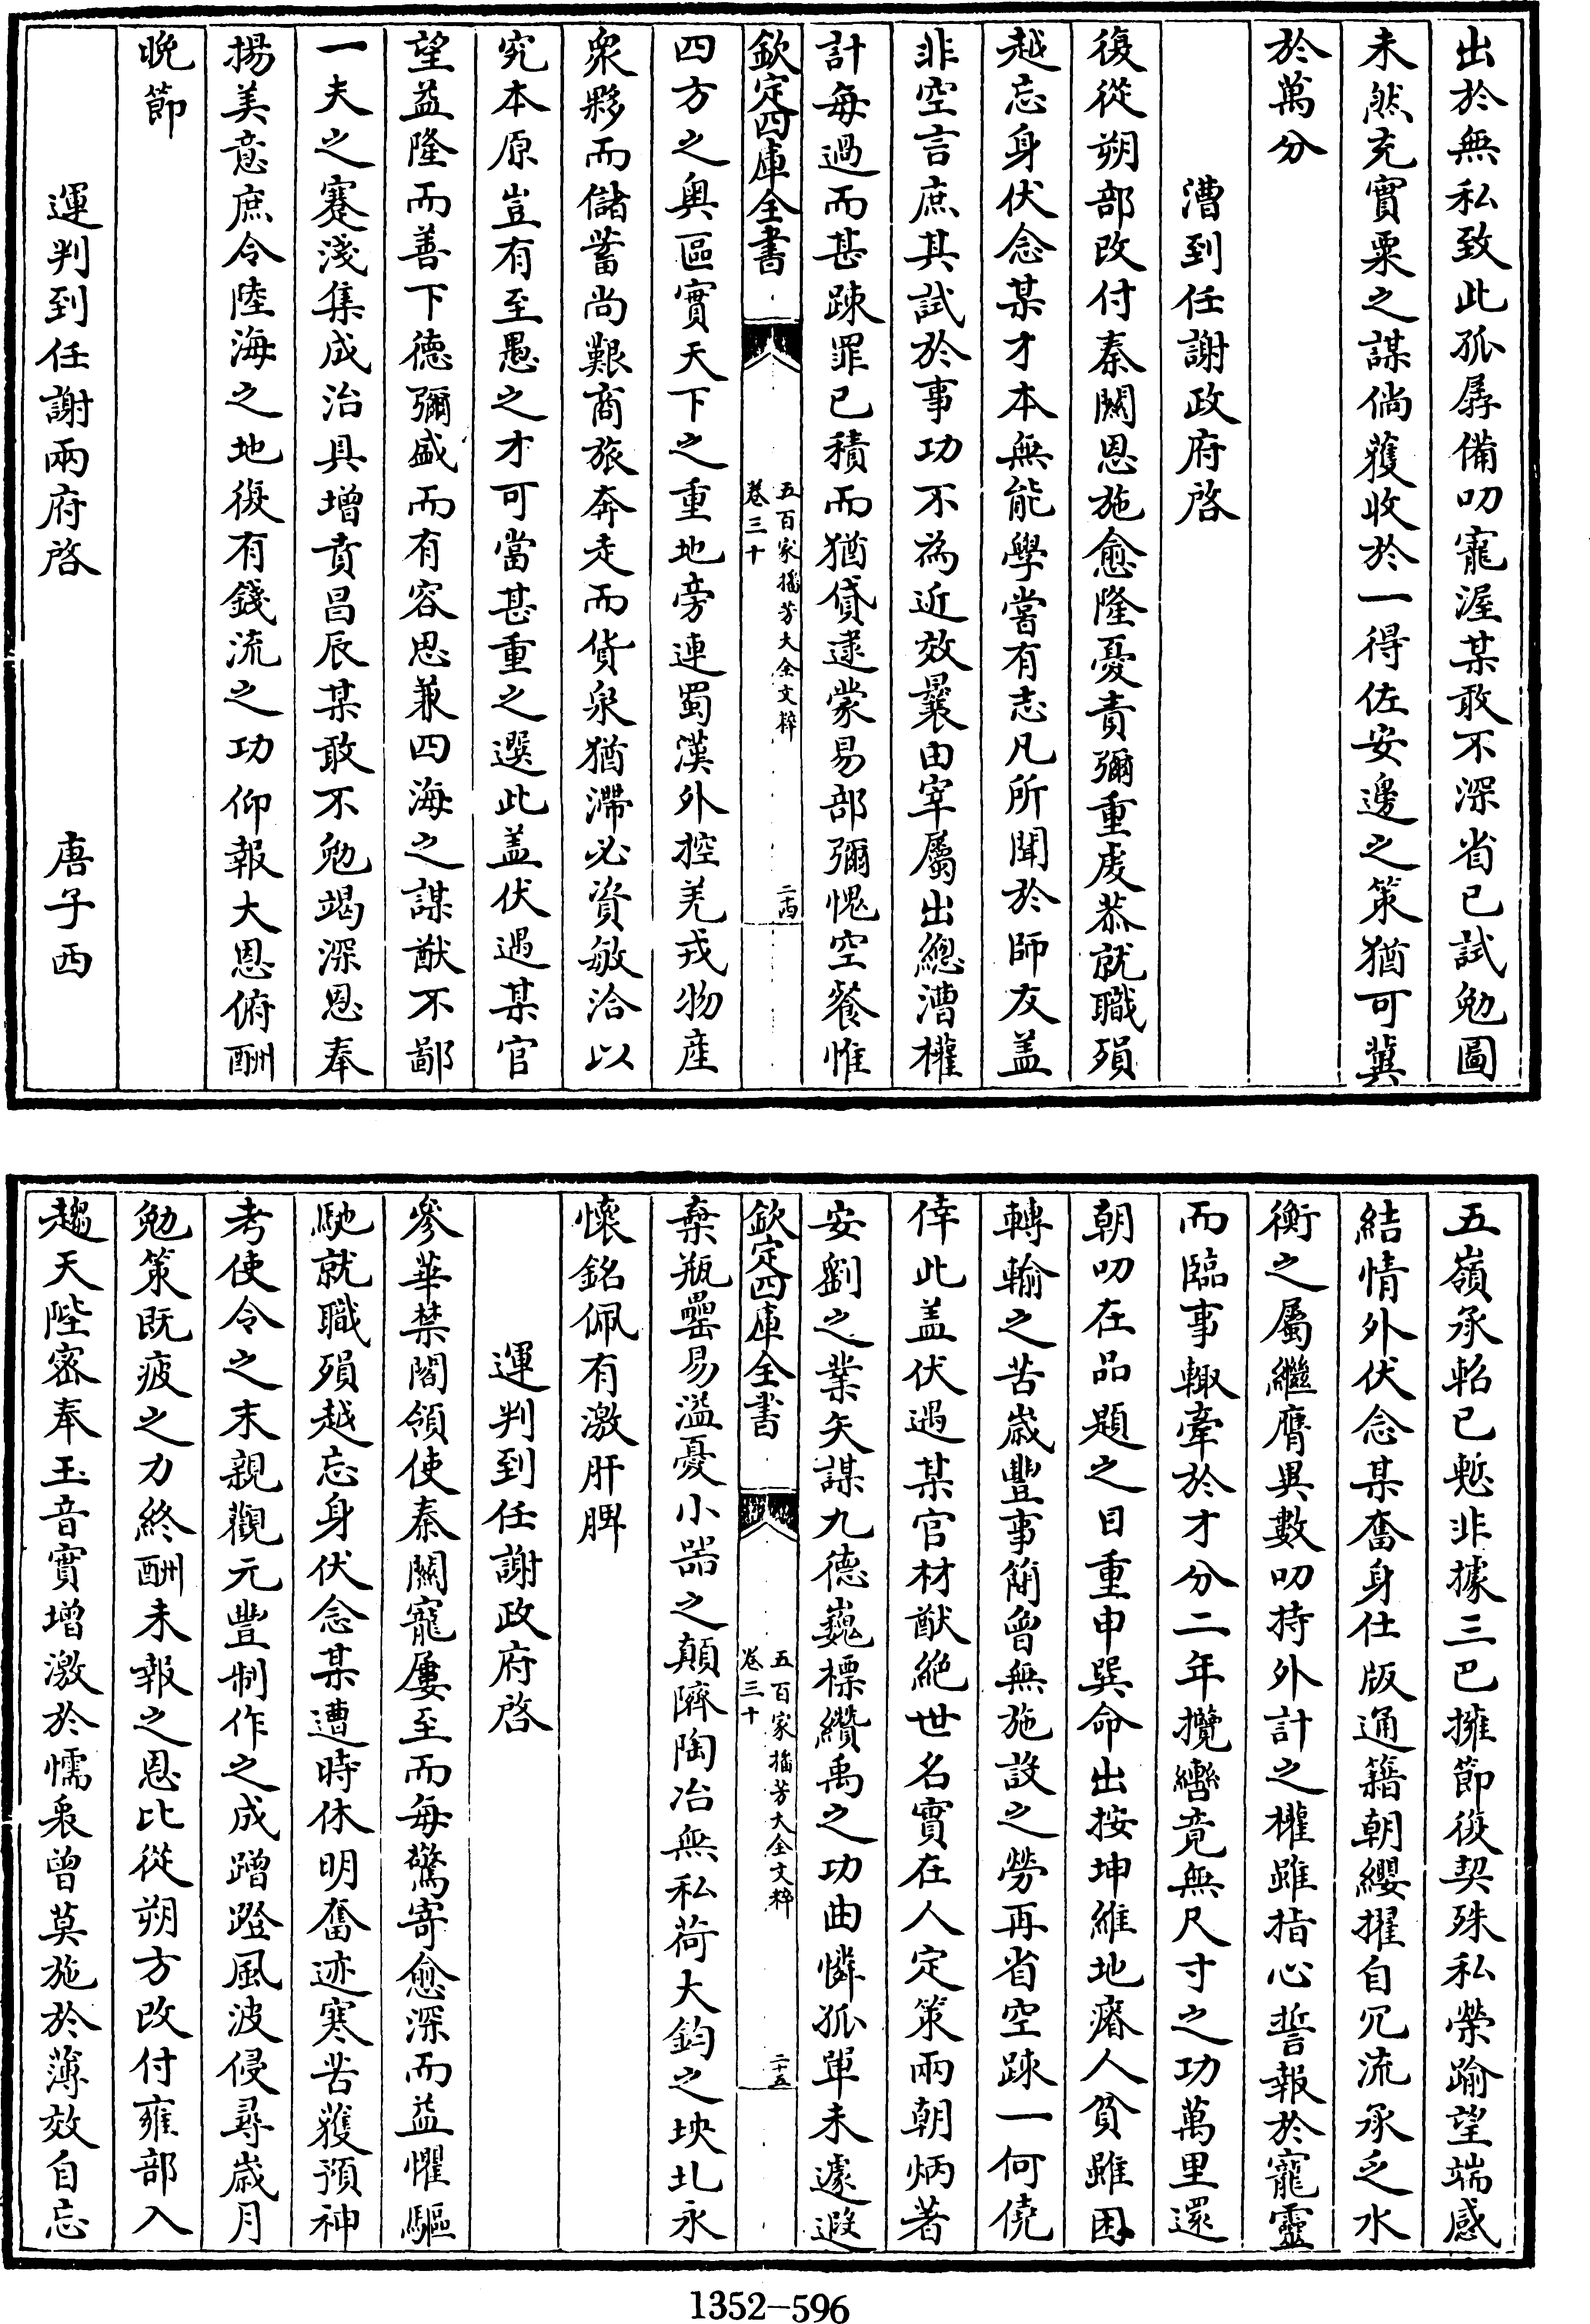 出於無私致此孤孱備叨寵渥某敢不深省已試勉圖
未然充實粟之謀倘獲收於一得佐安邊之策猶可冀
於萬分
漕到任謝政府啓
復從朔部改付秦關恩施愈隆憂責彌重虔恭就職殞
越忘身伏念某才本無能學嘗有志凡所聞於師友盖
非空言庶其試於事功不為近效曩由宰屬出總漕權
計每過而甚踈罪已積而猶貸逮蒙易部彌愧空餐惟
欽定四庫全書
五百家播芳大全文粹
卷三十
二十四
四方之奥區實天下之重地旁連蜀漢外控羌戎物産
衆夥而儲蓄尚艱商旅奔走而貨泉猶滯必資敏洽以
究本原豈有至愚之才可當甚重之選此盖伏遇某官
望益隆而善下德彌盛而有容思兼四海之謀猷不鄙
一夫之蹇淺集成治具增賁昌辰某敢不勉竭深恩奉
揚美意庶令陸海之地復有錢流之功仰報大恩俯酬
晚節
運判到任謝兩府啓
唐子西
五嶺承軺已慙非據三巴擁節復契殊私榮踰望端感
結情外伏念某奮身仕版通籍朝纓擢自冗流承乏水
衡之屬繼膺異數叨持外計之權雖指心誓報於寵靈
而臨事輙牽於才分二年攬轡竟無尺寸之功萬里還
朝叨在品題之目重申巽命出按坤維地瘠人貧雖困
轉輸之苦歲豐事簡曾無施設之勞再省空踈一何僥
倖此盖伏遇某官材猷絶世名實在人定策兩朝炳著
安劉之業矢謀九德巍標纘禹之功曲憐孤單未遽遐
欽定四庫全書
五百家播芳大全文粹
卷三十
二十五
棄瓶罍易溢憂小器之顛隮陶冶無私荷大鈞之坱圠永
懷銘佩有激肝脾
運判到任謝政府啓
參華禁閤領使秦關寵屢至而每驚寄愈深而益懼驅
馳就職殞越忘身伏念某遭時休明奮迹寒苦獲預神
考使令之末親觀元豐制作之成蹭蹬風波侵尋歲月
勉策既疲之力終酬未報之恩比從朔方改付雍部入
趨天陛密奉玉音實增激於懦衷曾莫施於薄效自忘
1352-596